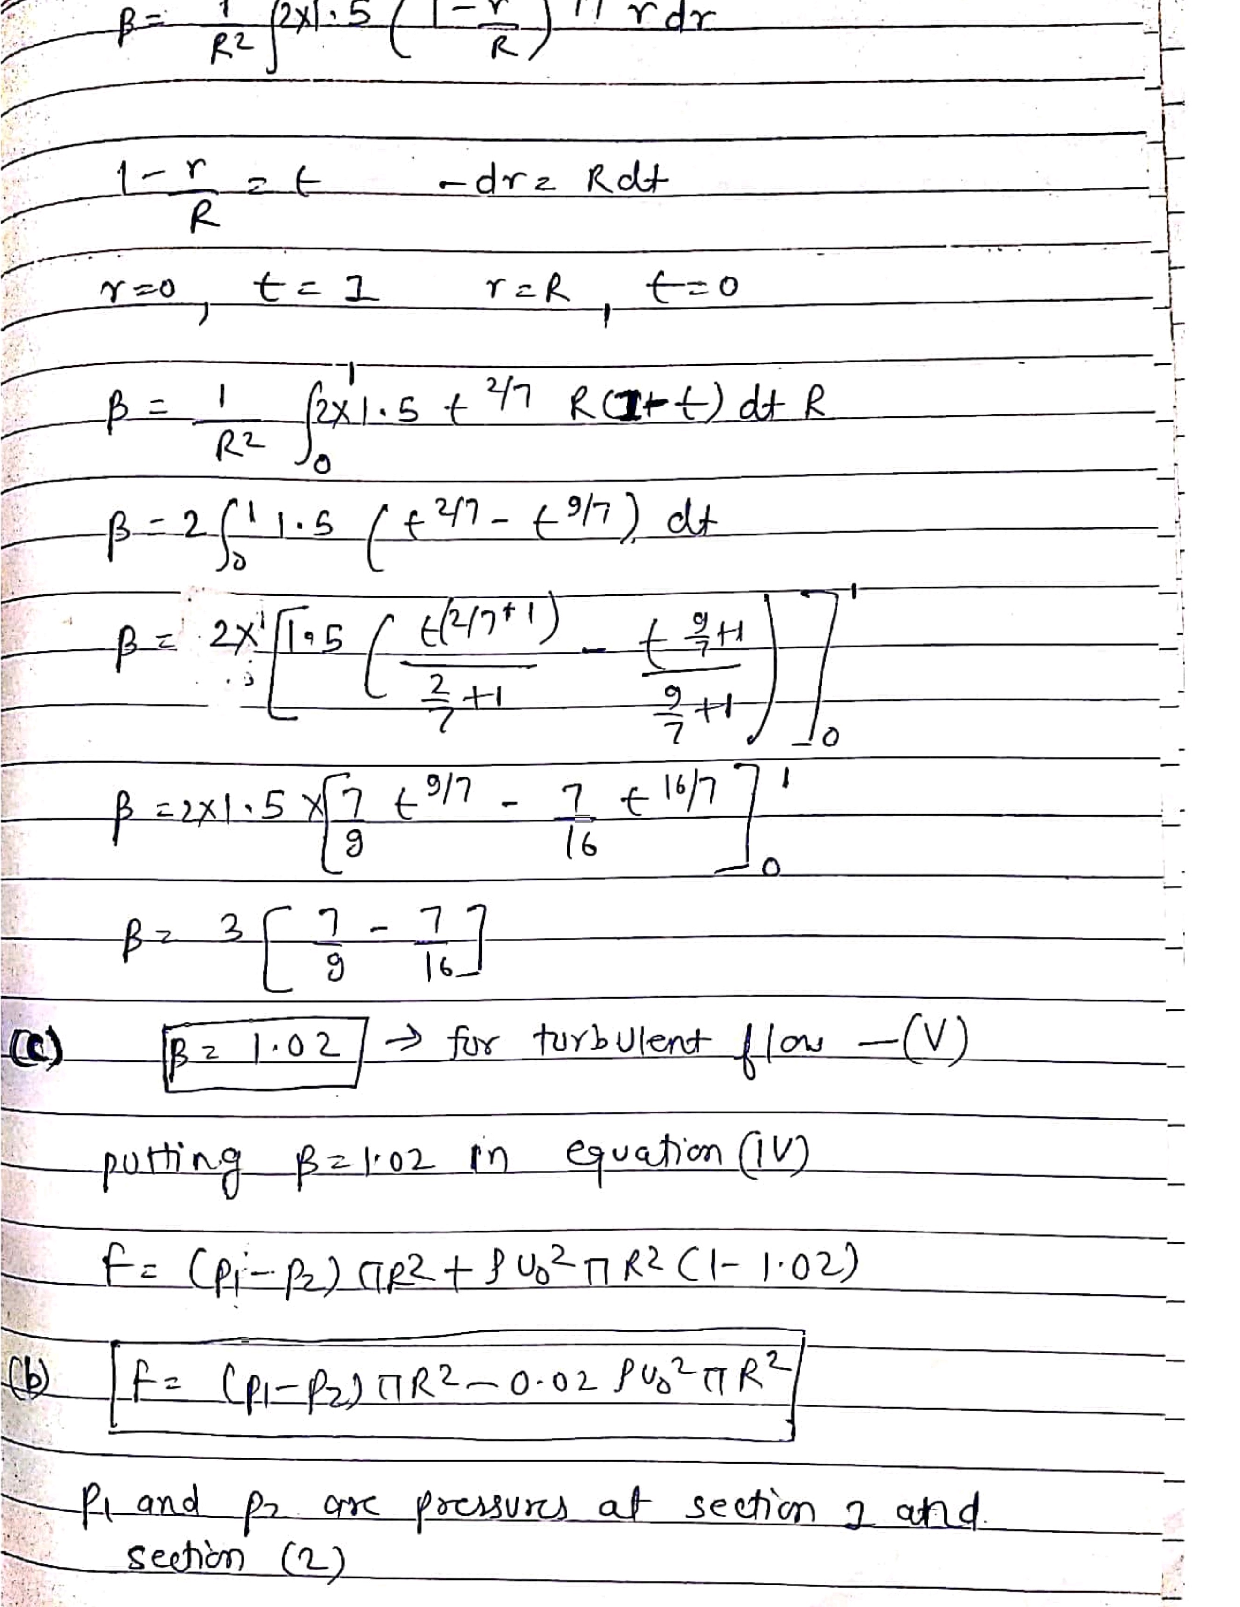 β = 1/R² ∫ 2×1.5 (1 - r/R) r dr
1 - r/R = t    - dr = R dt
r=0, t = 1    r = R, t = 0
β = 1/R² ∫₀¹ 2×1.5 t^2/7 R(1-t) dt R
β = 2 ∫₀¹ 1.5 (t^2/7 - t^9/7) dt
β = 2× [1.5 (t^(2/7+1) / (2/7 + 1) - t^(9/7+1) / (9/7 + 1))]₀¹
β = 2×1.5 × [7/9 t^9/7 - 7/16 t^16/7]₀¹
β = 3 [7/9 - 7/16]
(c) β = 1.02 → for turbulent flow — (V)
putting β = 1.02 in equation (IV)
F = (p₁ - p₂) πR² + ρ U₀² π R² (1 - 1.02)
(b) F = (p₁ - p₂) πR² - 0.02 ρU₀² π R²
p₁ and p₂ are pressures at section 1 and
section (2)